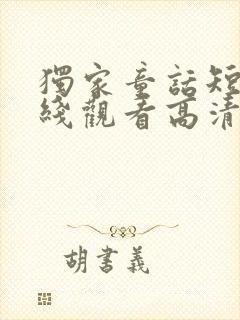 獨家童話短
綫觀看高清
胡書義